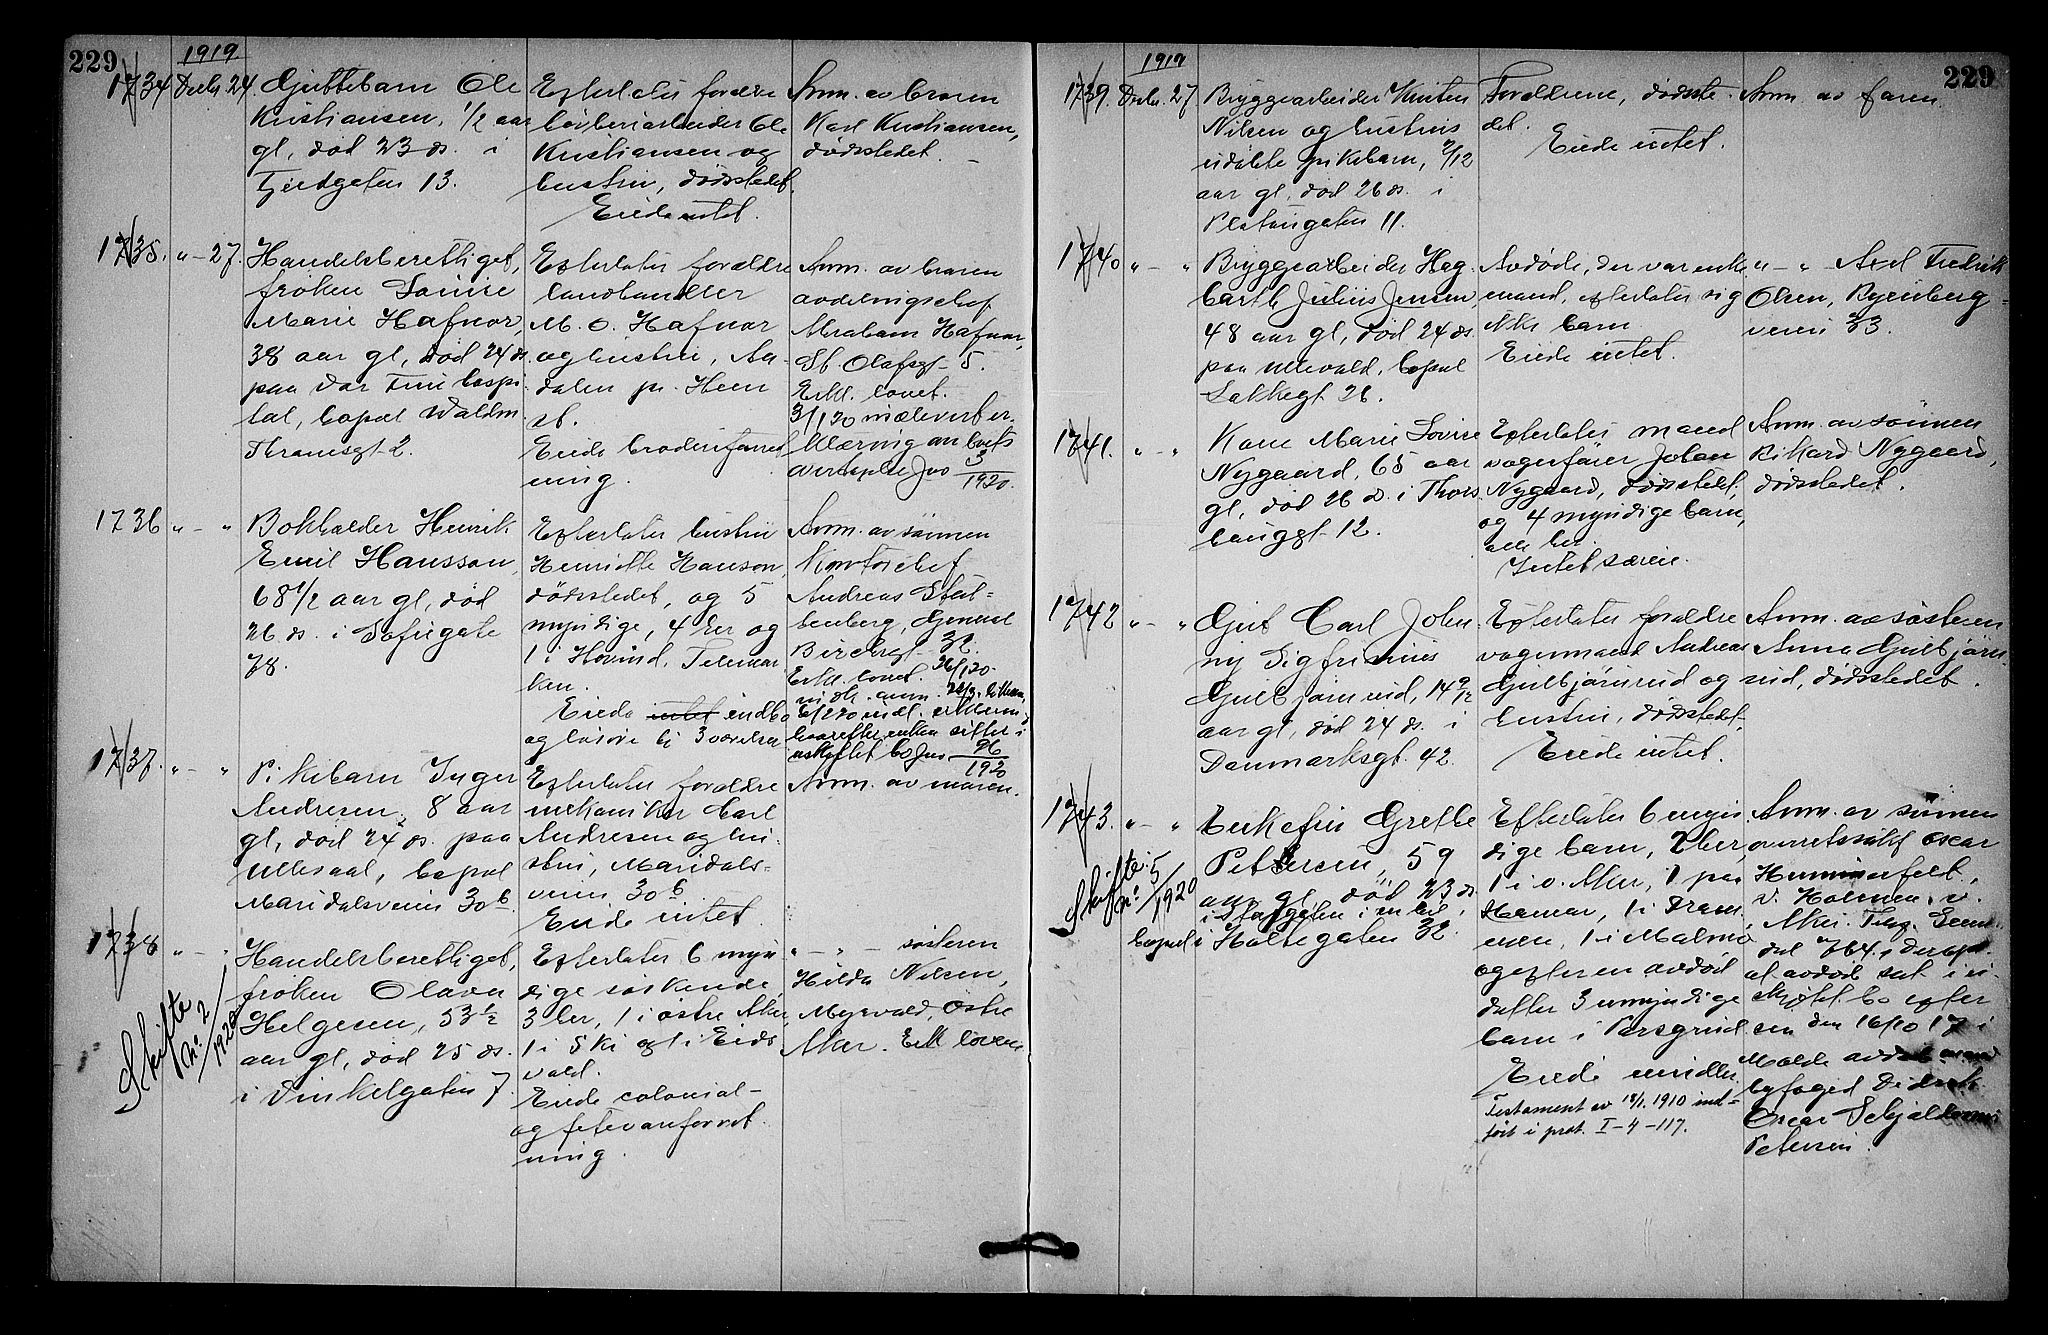 229
1919
1734 Decbr. 24.
Gjuttebarn Ole
Kristiansen, 1/2 aar
gl, död 23 ds. i
13.
Efterlater forældre
Ole
Kristiansen og
hustru, dödsstedet.
Eiede intet.
Anm. av broren
Karl Kristiansen,
dödsstedet.
1735. " - 27.
Handelsberettiget,
fröken Louise
Marie Hafnor,
38 aar gl, död 24 ds.
paa Vor Frue hospi
tal, bopæl Waldm.
Thranesgt 2.
Efterlater forældre
landhandler
M. O. Hafnor
og hustru, Aa-
dalen pr. Heen
st.
Eiede broderiforret
ning.
Anm. av broren
avdelingschef
Abraham Hafnor,
St. Olafsgt. 5.
Erkl. lovet.
3/1 20
3
1920.
1736 " - "
Bokholder Henrik
Emil Hansson,
68 1/2 aar gl, död
26 ds. i Sofiegate
78.
Efterlater hustru
Henriette Hanson,
dödsstedet, og 5
myndige, 4 her og
1 i Hovind, Telemar
ken.
Eiede intet indbo
og lösöre til 3 værelser
Anm. av sönnen
Kontorchef
Andreas
General
Birchsgt. 32.
Erkl. lovet.
enken sitter i
uskiftet bo Jno 96
1920
1737. " - "
Pikebarn Inger
Andresen, 8 aar
gl, död 24 ds. paa
Ullevaal, bopæl
Maridalsveien 30 b.
Efterlater forældre
mekaniker Carl
Andresen og hu-
stru, Maridals-
veien 30 b
Eiede intet.
Anm. av moren.
1738 " - "
Skifte
No. 2
1920
Handelsberettiget,
fröken Olava
Helgesen, 53 1/2
aar gl, död 25 ds.
i Vinkelgaten 7.
Efterlater 6 myn
dige söskende,
3 her, 1 i östre Aker,
1 i Ski og 1 i Eids
vold.
Eiede colonial-
og fetevareforret
ning.
" - " - søsteren
Hilda Nilsen,
Östre
Aker. Erkl. lovet.
229
1919
1739. Decbr. 27
Bryggearbeider Kristen
Nilsen og hustrus
udöbte pikebarn, 2/12
aar gl, död 26 ds. i
Platougaten 11.
Forældrene, dödsste-
det.
Eiede intet.
Anm. av faren.
1740 " - "
Bryggearbeider Hag-
barth Julius Jensen,
48 aar gl, död 24 ds.
paa Ullevold, bopæl
Lakkegt 26.
Avdöde, der var enke
mand, efterlater sig
ikke barn.
Eiede intet.
" - " - Axel Fredrik
Olsen, Ryenberg-
veien 33.
1741. " - "
Kone Marie Lovise
Nygaard, 65 aar
gl, död 26 ds. i Thors
haugt. 12.
Efterlater mand
vognfører Johan
Nygaard, dödsstedet,
og 4 myndige barn,
alle her.
Intet særeie.
Anm. av sönnen
Rikard Nygaard,
dödsstedet.
1742 " - "
Gjut Carl John-
ny Sigfrinius
Gulbjörnrud, 14 9/12
aar gl, död 24 ds. i
Danmarksgt. 42.
Efterlater forældre
vognmand Andreas
Gulbjörnrud og
hustru, dödsstedet.
Eiede intet.
Anm. av søsteren
Anna Gulbjörn-
rud, dödsstedet.
1743. " - "
Skifte:
No. 5
1920
Enkefru Grethe
Petersen, 59
aar gl, död 23 ds.
i Storgaten i en bil,
bopæl i Holtegaten 32.
Efterlater 6 myn
dige barn, 2 her,
1 i v. Aker, 1 paa
Hamar, 1 i Dram
men, 1 i Malmö
og efter en avdöd
datter 3 umyndige
barn i Porsgrund.
Eiede midler.
Testament av 18/1. 1910 ind-
fört i prot. I-4-117.
Anm. av svigersönnen
overretssakf. Oscar
Hummerfelt,
v. Holmen, v.
Aker. Telef.
764.
at avdöde sat i u-
skiftet bo efter
sin den 16/10 17 i
Molde avdöde mand
byfoged Didrik
Oscar Schjelderup
Petersen.